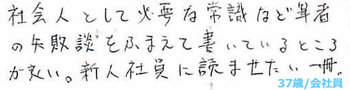 社会人として必要な常識など筆者
の失敗談をふまえて書いているところ
が良い。新人社員に読ませたい一冊。
37歳/会社員